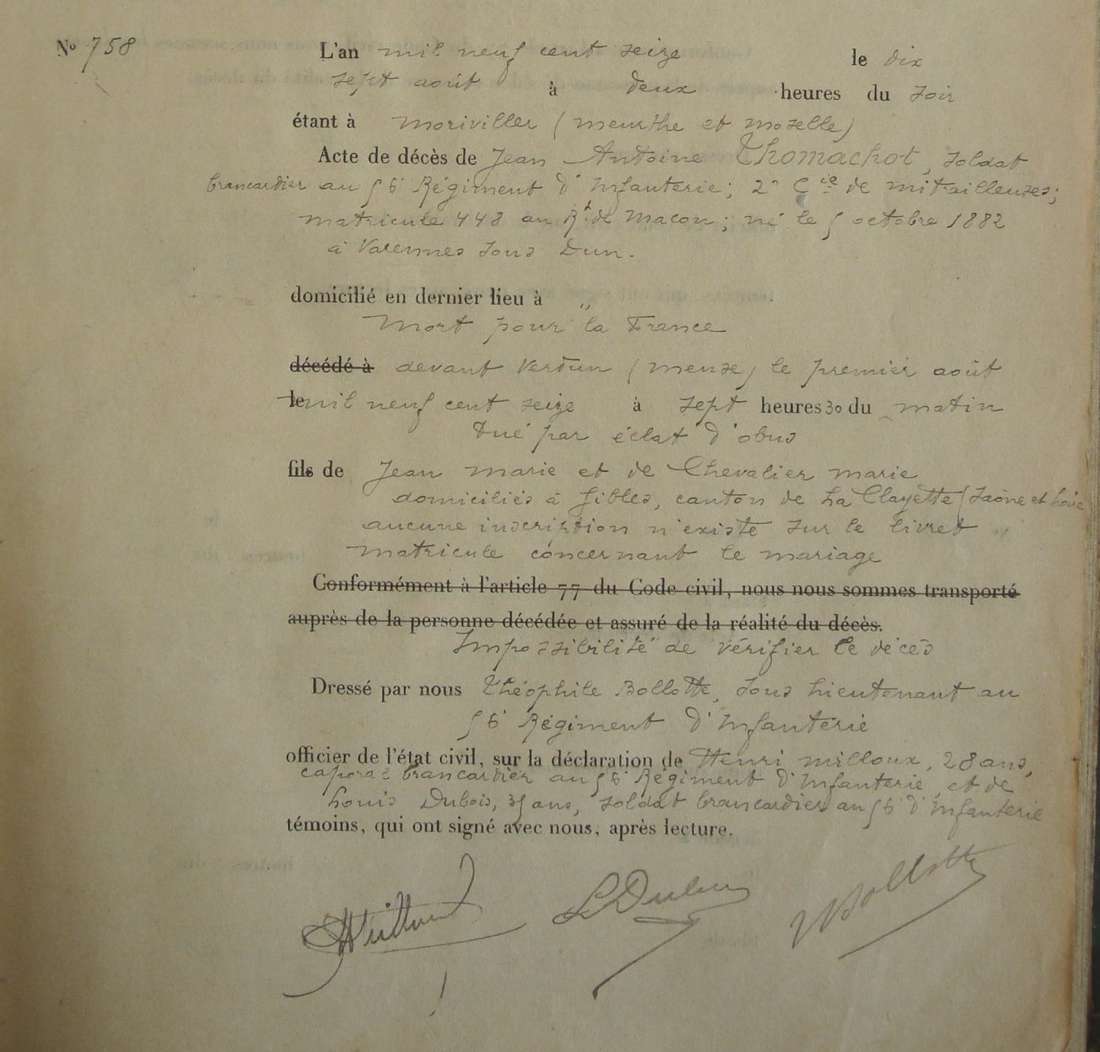 N° 758
L'an mil neuf cent seize le dix
sept août à deux heures du soir
étant à Moriviller (Meurthe et Moselle)
Acte de décès de Jean Antoine Thomachot, soldat
brancardier au 56e Régiment d'Infanterie; 2e Cie de mitrailleuses;
matricule 448 au Rt de Macon; né le 5 octobre 1882
à Varennes sous Dun.
domicilié en dernier lieu à "
Mort pour la France
décédé à devant Verdun (Meuse) le premier août
le mil neuf cent seize à sept heures 30 du matin
tué par éclat d'obus
fils de Jean Marie et de Chevalier Marie
domiciliés à Gibles, canton de La Clayette (Saône et Loire
aucune inscription n'existe sur le livret
matricule concernant le mariage
Conformément à l'article 77 du Code civil, nous nous sommes transporté
auprès de la personne décédée et assuré de la réalité du décès.
Impossibilité de vérifier le décès
Dressé par nous Théophile Bollotte, sous Lieutenant au
56e Régiment d'Infanterie
officier de l'état civil, sur la déclaration de Henri Milloux, 28 ans,
caporal brancardier au 56e Régiment d'Infanterie, et de
Louis Dubois, 35 ans, soldat brancardier au 56 d'Infanterie
témoins, qui ont signé avec nous, après lecture.
L Dubois Bollotte